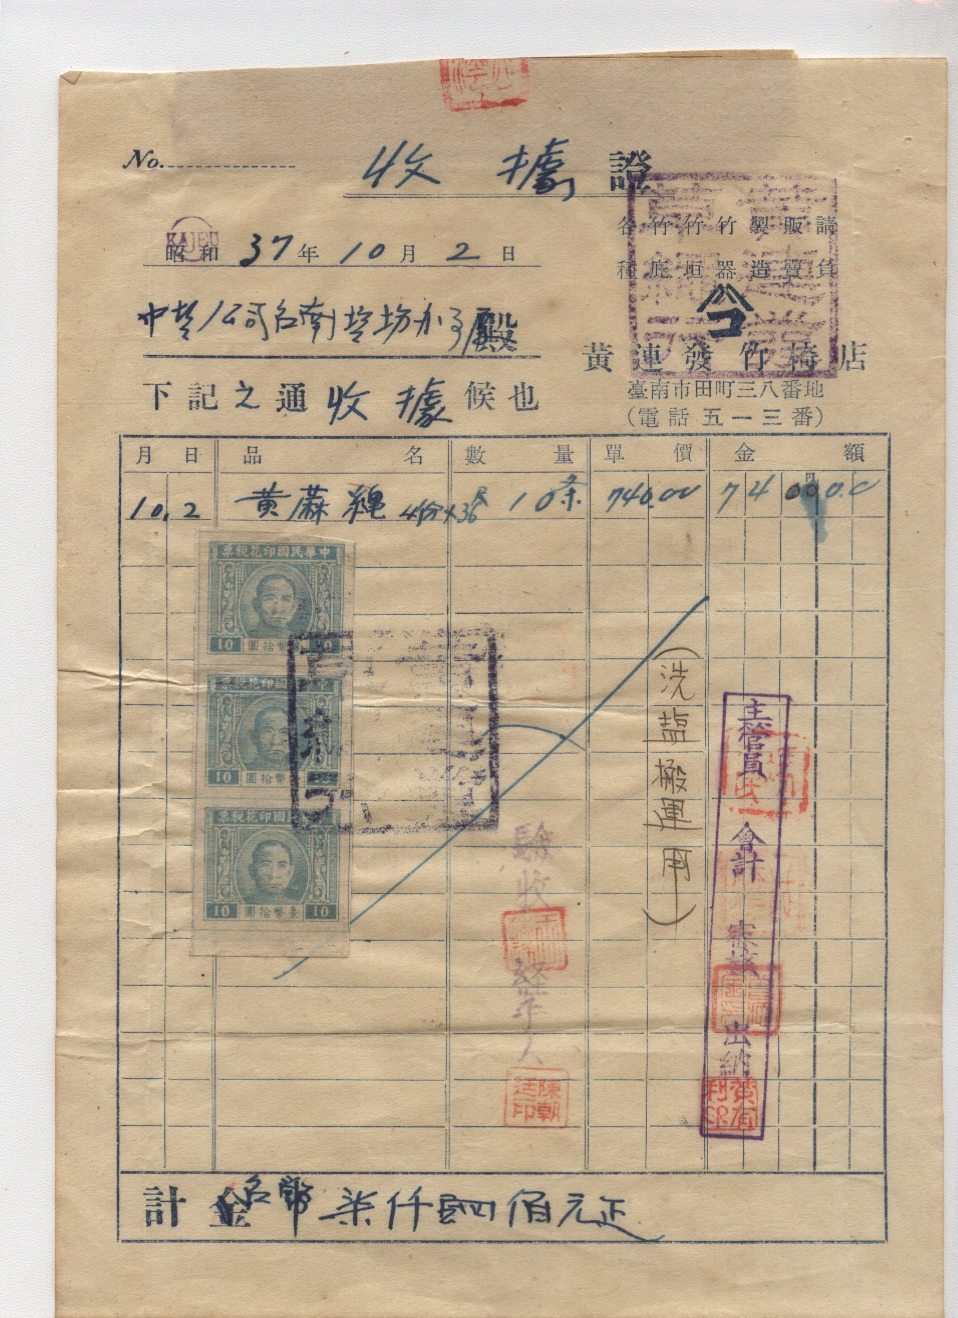 No.
收據證
KAJEU
昭和 37年10月2日
殿
各種 竹庇 竹垣 竹器 製造 販賣 請負
黃連發竹椅店
臺南市田町三八番地
(電話五一三番)
下記之通收據候也
月 日 品名 數量 單價 金額
10,2 黄蔴繩 10条 740.00 7400 0.0
中華民國印花稅票
10 圓拾幣臺 10
中華民國印花稅票
10 圓拾幣臺 10
中華民國印花稅票
10 圓拾幣臺 10
(洗塩搬運用)
主管員 會計 審核 出納
驗收
経手人
陳朝廷印
計金 台幣柒仟四佰元正